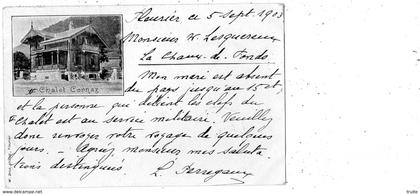 Fleurier ce 5 Sept. 1903
Monsieur W. Lesquereux
La Chaux-de-Fonds
Mon mari est absent
du pays jusqu'au 15 et
et la personne qui détient les clefs du
Chalet est au service militaire. Veuillez
donc renvoyer votre voyage de quelques
jours. — Agréez monsieur mes saluta
tions distinguées
L. Perregaux
Chalet Cornaz